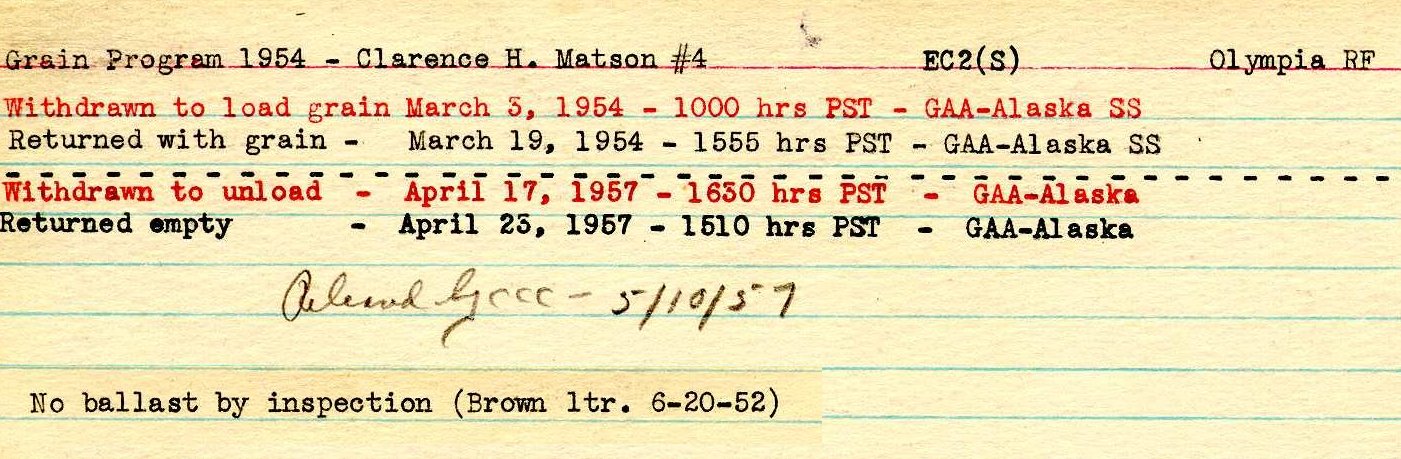 Grain Program 1954 - Clarence H. Matson #4 EC2(S) Olympia RF
Withdrawn to load grain March 3, 1954 - 1000 hrs PST - GAA-Alaska SS
Returned with grain - March 19, 1954 - 1555 hrs PST - GAA-Alaska SS
Withdrawn to unload - April 17, 1957 - 1630 hrs PST - GAA-Alaska
Returned empty - April 23, 1957 - 1510 hrs PST - GAA-Alaska
by CCC - 5/10/57
No ballast by inspection (Brown ltr. 6-20-52)